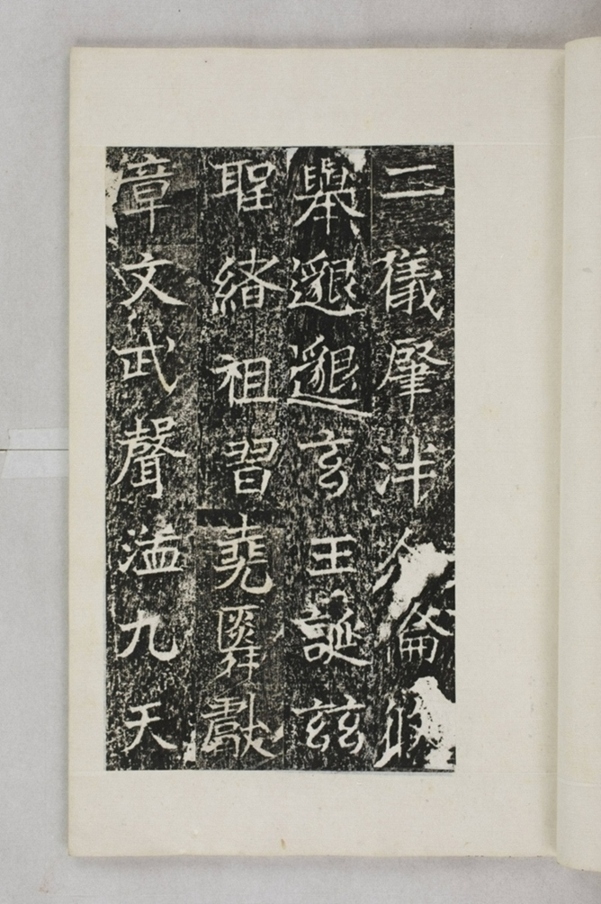 二儀肇泮人倫攸
舉邈邈玄王誕茲
聖緒祖習堯舜獻
章文武聲溢九天